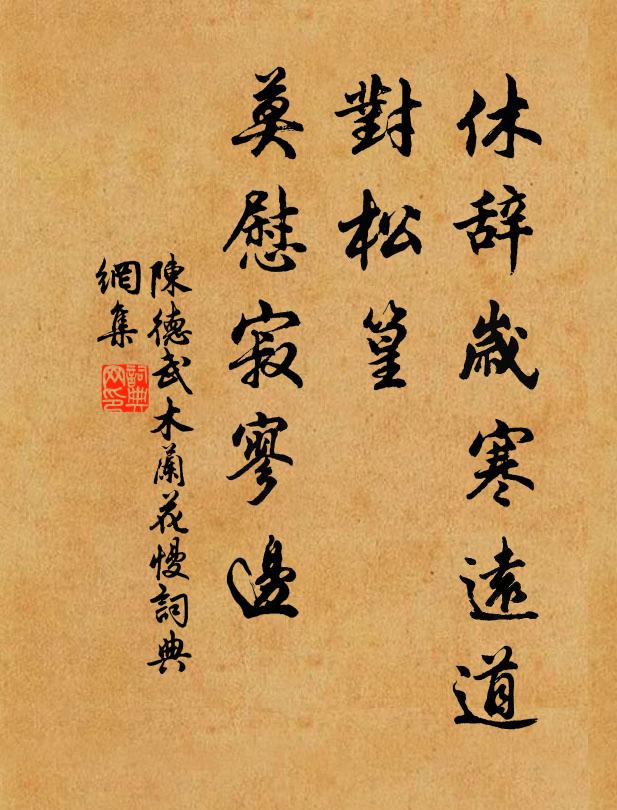 休辞歲寒遠道
對松篁
莫慰寂寥邊
陳德武木蘭花慢詞典
網集
詞典
網印